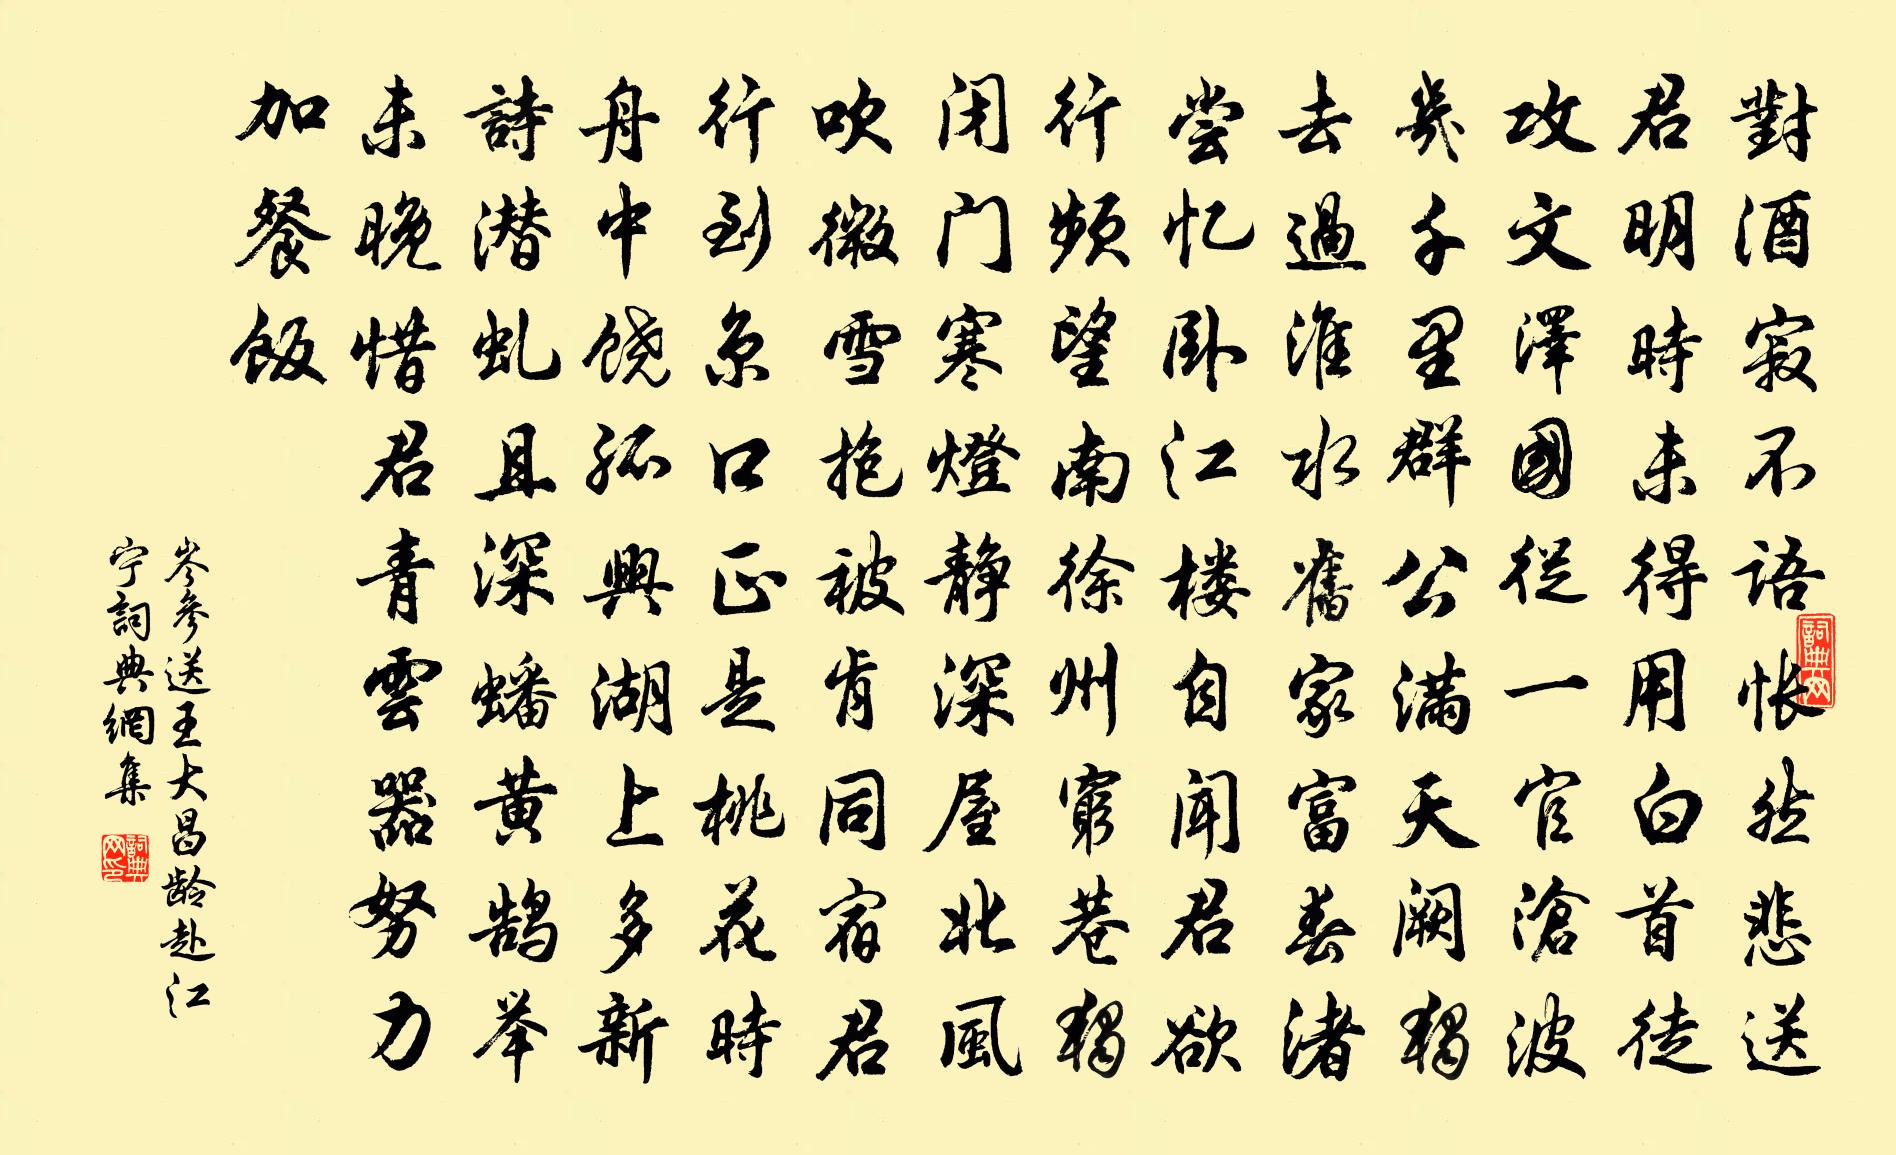 對酒寂不語怅然悲送
君明時未得用白首徒
攻文澤國從一官滄波
幾千里群公滿天闕獨
去過淮水舊家富春渚
尝忆卧江楼自闻君欲
行频望南徐州窮巷獨
闭门寒燈静深屋北風
吹微雪抱被肯同宿君
行到京口正是桃花時
舟中饶孤興湖上多新
詩潜虬且深蟠黄鹄举
未晚惜君青雲器努力
加餐飯
岑參送王大昌龄赴江
宁詞典網集
詞典网
詞典网印